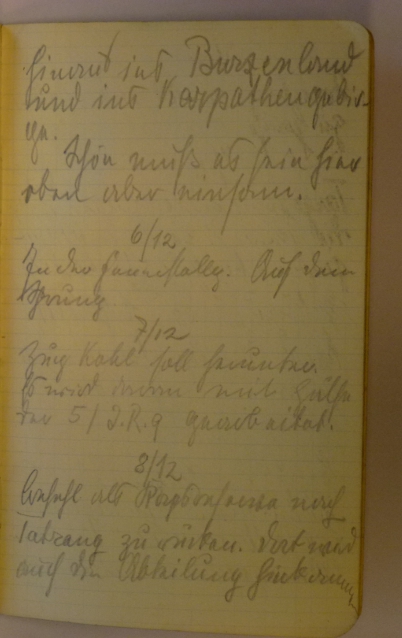 hinaus ins Burzenland
und ins Karpathengebir-
ge.
Schön muß es sein hier
oben aber einsam.
6/12
In der Feuerstellg. Auf dem
Sprung
7/12
Zug Kohl soll herunter.
Es wird daran mit Hülfe
der 5/I.R.9 gearbeitet.
8/12
Befehl als Korpsreserve nach
Tatrang zu rücken. Dort wird
auch die Abteilung hinkommen